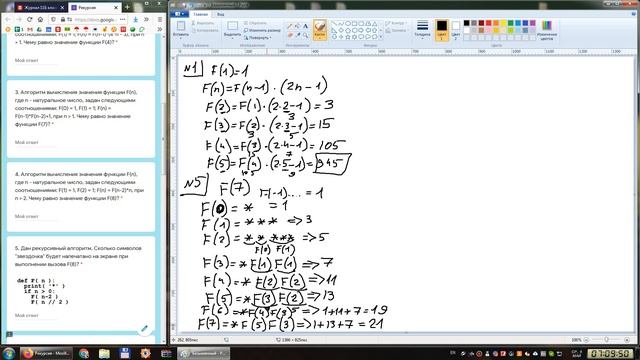 Журнал 11Б клас
Рекурсия
https://docs.google
Главная
Вид
соотношениями: F(1) = 1, F(n) = F(n-1)*(4*n - 3), при
n > 1. Чему равно значение функции F(4)? *
Мой ответ
3. Алгоритм вычисления значения функции F(n),
где n - натуральное число, задан следующими
соотношениями: F(0) = 1, F(1) = 1; F(n) =
F(n-1)*F(n-2)+1, при n > 1. Чему равно значение
функции F(7)? *
Мой ответ
4. Алгоритм вычисления значения функции F(n),
где n - натуральное число, задан следующими
соотношениями: F(1) = 1, F(2) = 1; F(n) = F(n-2)*n, при
n > 2. Чему равно значение функции F(8)? *
Мой ответ
5. Дан рекурсивный алгоритм. Сколько символов
"звездочка" будет напечатано на экране при
выполнении вызова F(6)? *
def F( n ):
print( '*' )
if n > 0:
F( n-2 )
F( n // 2 )
№1
F(1)=1
F(n)=F(n-1)·(2n-1)
F(2)=F(1)·(2·2-1)=3
3
F(3)=F(2)·(2·3-1)=15
3 5
F(4)=F(3)·(2·4-1)=105
15 7
F(5)=F(4)·(2·5-1)=945
105 9
№5
F(7)
F(-1).... = 1
F(0)=* = 1
F(1)=*** =>3
F(2)=** *** =>5
F(0) F(1)
F(3)=*F(1)F(1)=>7
F(4)=*F(2)F(2)=>11
F(5)=*F(3)F(2)=>13
F(6)=*F(4)F(3)=>1+11+7=19
F(7)=*F(5)F(3)=>1+13+7=21
Рекурсия - Mozilla F
Безымянный - P
1386 × 825пкс
100%
EN
07:09:50